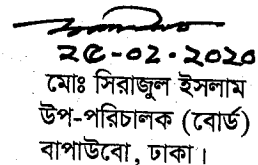 ২৫-০২-২০২০
মোঃ সিরাজুল ইসলাম
উপ-পরিচালক (বোর্ড)
বাপাউবো, ঢাকা।